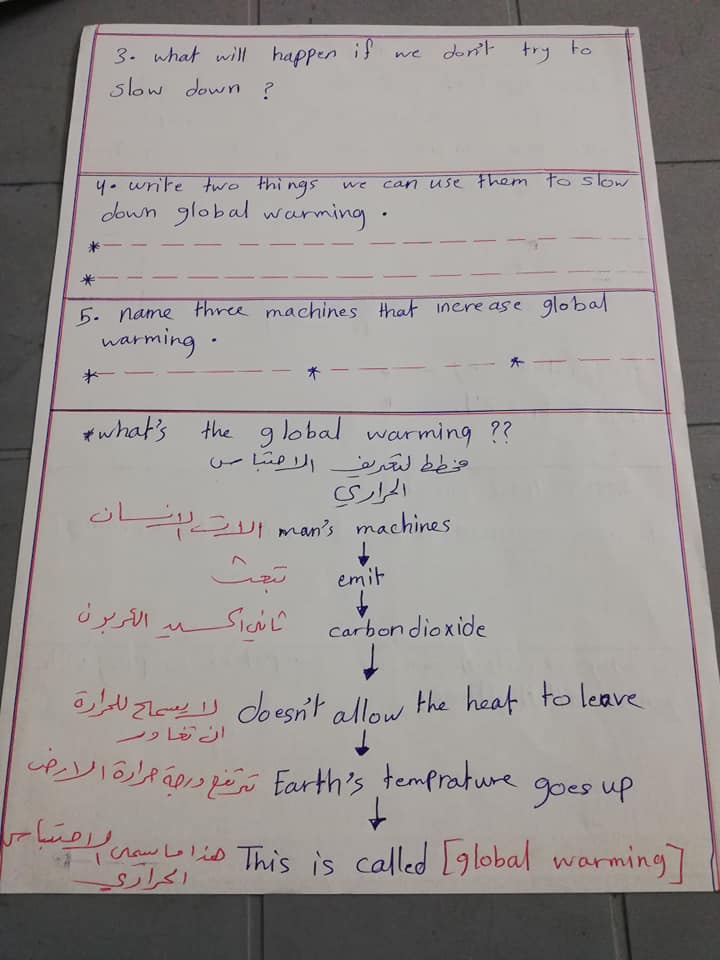 3. what will happen if we don't try to
slow down ?
4. write two things we can use them to slow
down global warming .
*
*
5. name three machines that increase global
warming .
* * *
*what's the global warming ??
مخطط لتعريف الاحتباس
الحراري
الات الانسان man's machines
تبعث emit
ثاني اكسيد الكربون carbon dioxide
لا يسمح للحرارة doesn't allow the heat to leave
ان تغادر
ترتفع درجة حرارة الارض Earth's temprature goes up
هذا ما يسمى الاحتباس This is called [global warming]
الحراري